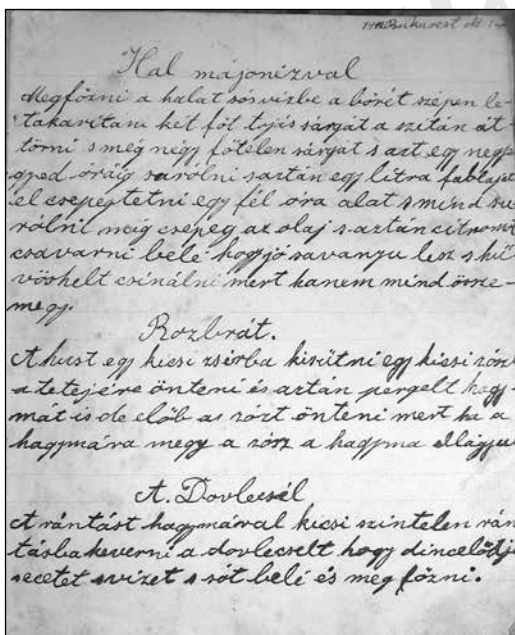 Bukarest okt.
Hal májonizval
Megfőzni a halat sós vizbe a bőrét szépen le-
takaritani két főt tojás sárgát a szitán át-
törni s még négy főtelen sárgát s azt egy negye
gyed óráig sarólni s aztán egy litra fabtajat
el csepegtetni egy fél óra alat s mind su
rólni meig csepeg az olaj s aztán citromot
csavarni belé hogy jó savanyu lesz s hü
vöshelt csinálni mert hanem mind össze-
megy.
Rozbrát.
A hust egy kicsi zsirba kisütni egy kicsi zósz
a tetejére önteni és aztán pergelt hagy-
mát is de előb az zózt önteni mert ha a
hagymára megy a zósz a hagyma ellágyu
A. Dovlecsél
A rántást hagymával kicsi szintelen rán
tásba keverni a dovlecselt hogy dincelődje
secetet s vizet s sót belé és meg főzni.